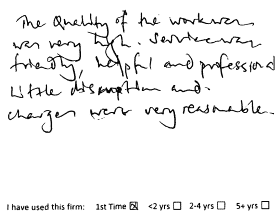 The Quality of the work was
was very high. Service was
friendly, helpful and professional
Little disruption and
charges were very reasonable.
I have used this firm: 1st Time ☒ <2 yrs ☐ 2-4 yrs ☐ 5+ yrs ☐